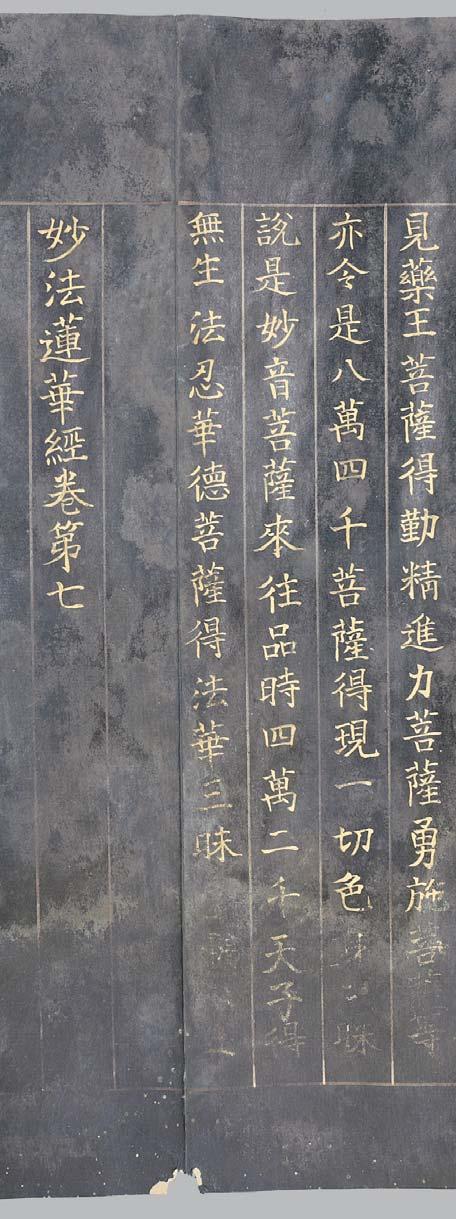 見藥王菩薩得勤精進力菩薩勇施菩薩等
亦令是八萬四千菩薩得現一切色身三昧
說是妙音菩薩來往品時四萬二千天子得
無生法忍華德菩薩得法華三昧
妙法蓮華經卷第七